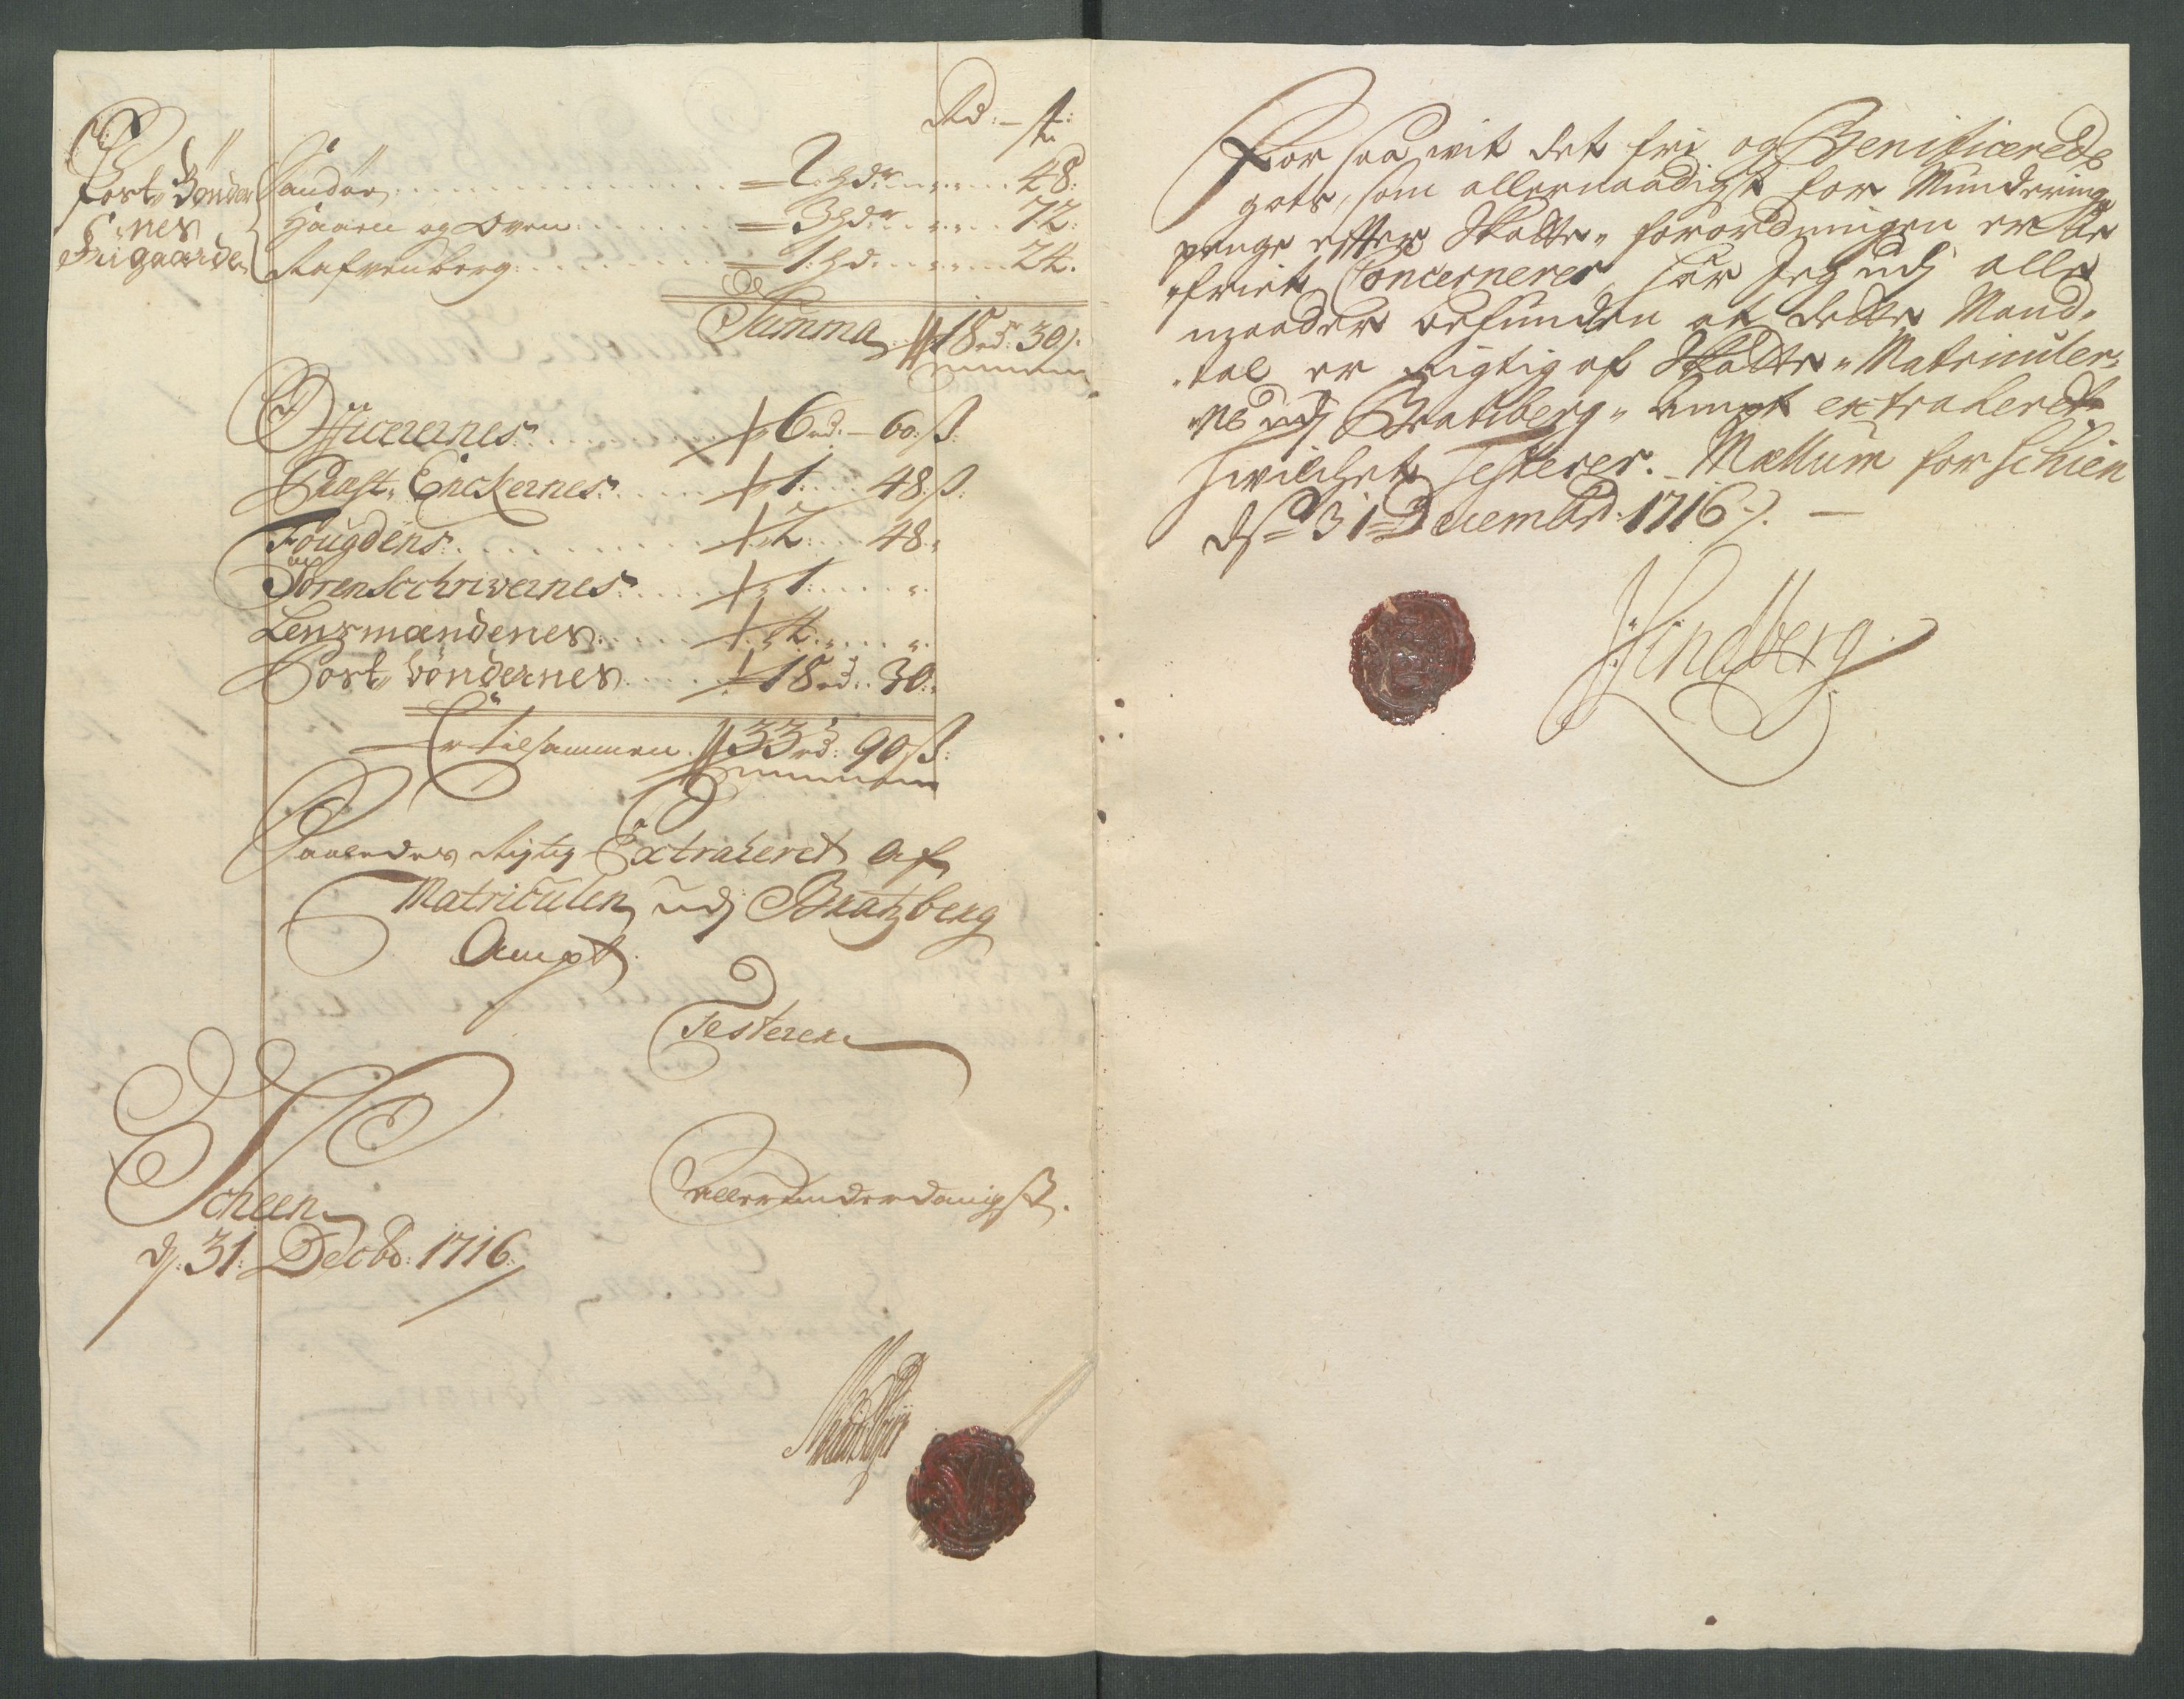 Rd: – ß:
Post Bønder
nes
Friigaarde
Sandøe 2 hdr 48:
Haaen og Oven 3 hdr 72:
Rafvenberg 1 hd 24.
Summa 18 rd: 30 ß.
Officerernes 6 rd. – 60: ß:
Præst Enckernes 1 48: ß:
Fougdens 2 48:
Sorenschrivernes 1
Lensmændenes 4
Post bøndernes 18 rd: 30:
Er tilsammen 33 rd: 90 ß:
Saaledes Rigtig Extraheret af
Matriculen udj Bratzberg
Ampt
Testerer
Scheen
d: 31: Decbr: 1716
allerunderdanigst.
For saa wit det fri og Benificerede
gots, som allernaadigst for Munderings
penge efter Skatte-forordningen er be
friet Concernerer, har Jeg udj alle
maader befunden at dette Mand-
tal er Rigtig af Skatte-Matriculer-
ne udj Bratsberg-Ampt extraheret
hwilchet Testerer. Mællum for Schien
d 31 Decembr: 1716
Lindberg